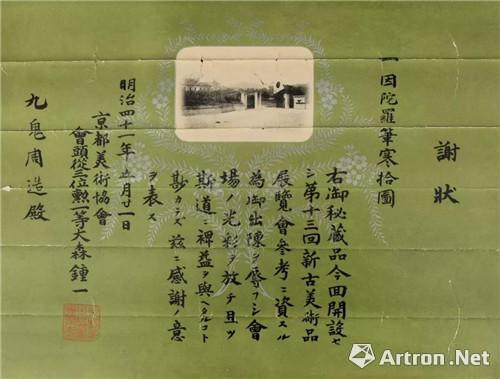 謝状
一因陀羅筆寒拾圖
右御秘蔵品今回開設セ
シ第十三回新古美術品
展覧會参考ニ資スル
為御出陳ヲ辱フシ會
場ノ光彩ヲ放チ且ツ
斯道ニ裨益ヲ與ヘタルコト
尠カラス茲ニ感謝ノ意
ヲ表ス
明治四十一年五月廿一日
京都美術協會
會頭從三位勲一等大森鍾一
九鬼周造殿
Artron.Net